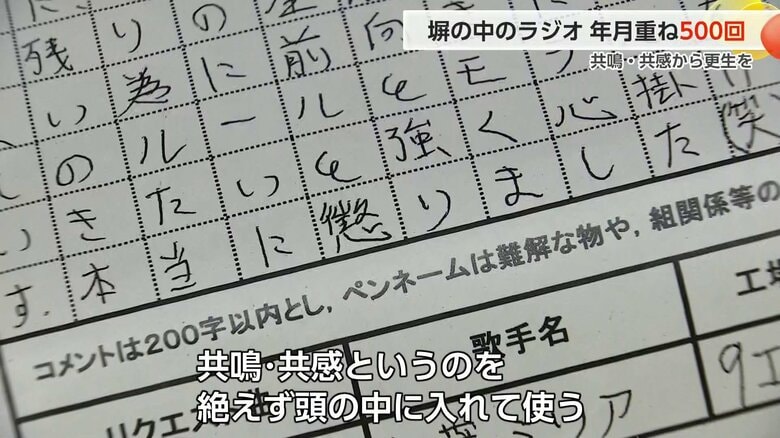 塀の中のラジオ 年月重ね500回
共鳴・共感から更生を
残りの
い為に前向
のルールをモ
いきたいと強く心掛け
す。本当に懲りました(笑
コメントは200字以内とし，ペンネームは難解な物や，組関係等の
歌手名
工場
リクエスト曲
リア
9工
共鳴・共感というのを
絶えず頭の中に入れて使う